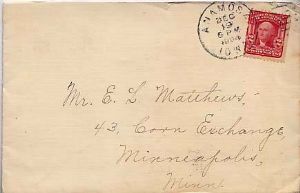 ANAMOSA
DEC
19
6 PM
IOWA
Mr. E. L. Matthews.
43, Corn Exchange,
Minneapolis,
Minn.